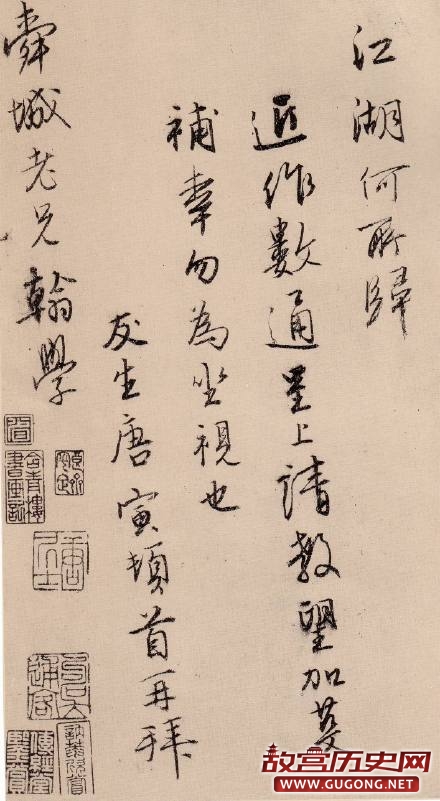 江湖何所歸
近作數通呈上請教望加芟
補幸勿為坐視也
友生唐寅頓首再拜
舜城老兄翰學
故宫历史网
WWW.GUGONG.NET